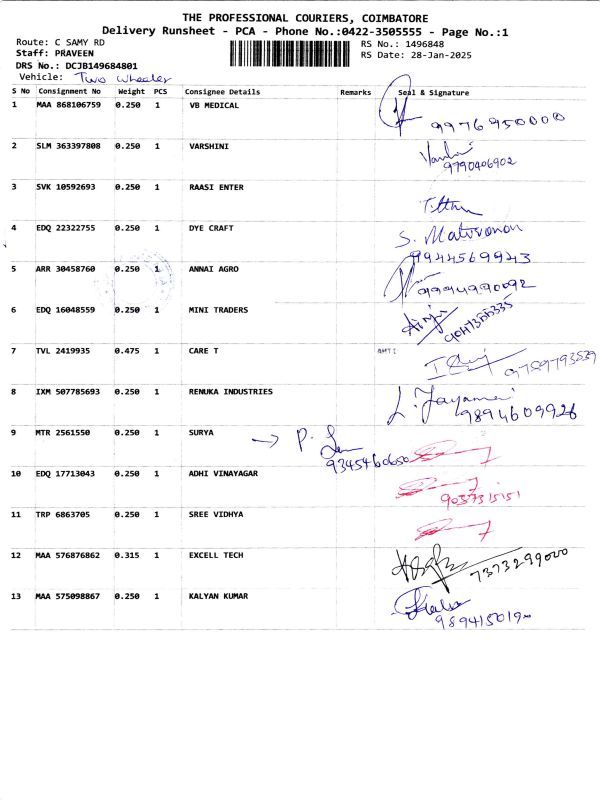 THE PROFESSIONAL COURIERS, COIMBATORE
Delivery Runsheet - PCA - Phone No.:0422-3505555 - Page No.:1
Route: C SAMY RD
Staff: PRAVEEN
DRS No.: DCJB149684801
Vehicle: Two Wheeler
RS No.: 1496848
RS Date: 28-Jan-2025
S No Consignment No Weight PCS Consignee Details Remarks Seal & Signature
1 MAA 868106759 0.250 1 VB MEDICAL
9976950000
2 SLM 363397808 0.250 1 VARSHINI
9790406902
3 SVK 10592693 0.250 1 RAASI ENTER
4 EDQ 22322755 0.250 1 DYE CRAFT
9944569943
5 ARR 30458760 0.250 1 ANNAI AGRO
9994990092
6 EDQ 16048559 0.250 1 MINI TRADERS
7 TVL 2419935 0.475 1 CARE T
9789793539
8 IXM 507785693 0.250 1 RENUKA INDUSTRIES
9894609926
9 MTR 2561550 0.250 1 SURYA
9345460650
10 EDQ 17713043 0.250 1 ADHI VINAYAGAR
9037315151
11 TRP 6863705 0.250 1 SREE VIDHYA
12 MAA 576876862 0.315 1 EXCELL TECH
7373299000
13 MAA 575098867 0.250 1 KALYAN KUMAR